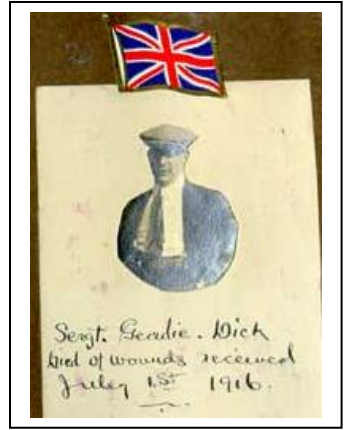 Sergt. Geadie. Dick
Died of wounds received
July 1st 1916.